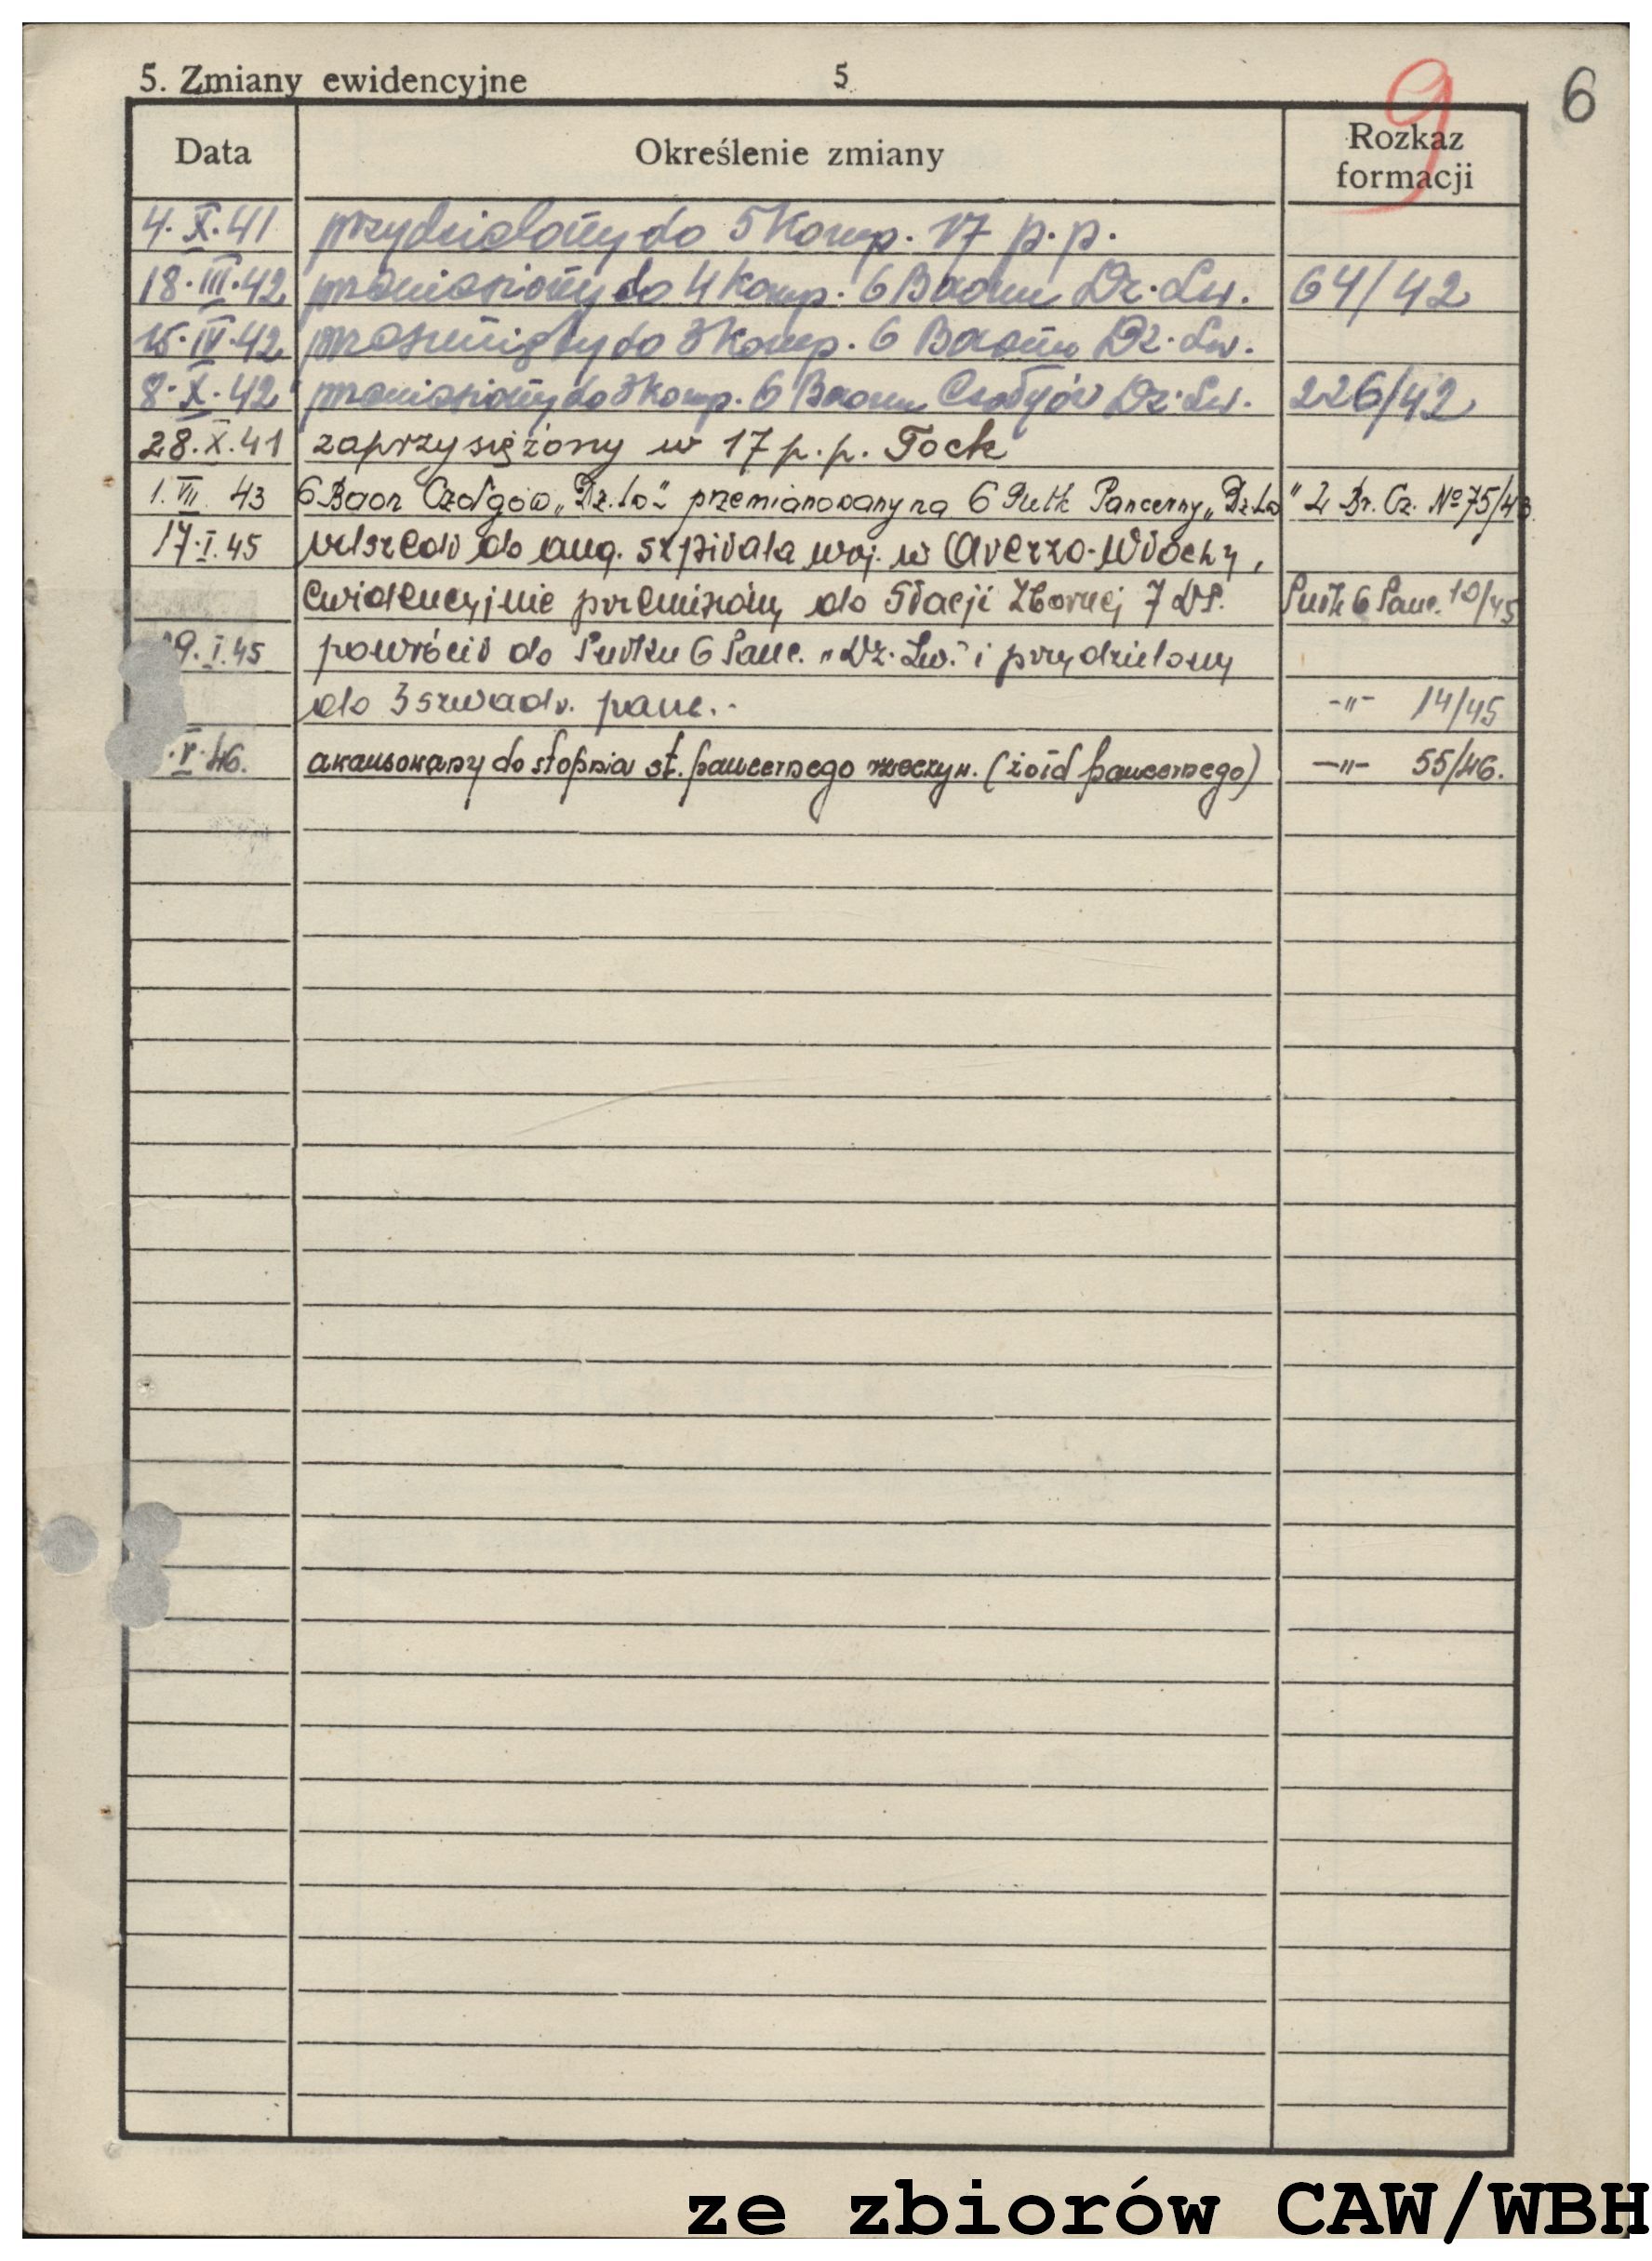 5. Zmiany ewidencyjne 5 9 6
Data Określenie zmiany Rozkaz formacji
4.X.41 przydzielony do 5 Komp. 17 p.p.
18.III.42 przeniesiony do 4 Komp. 6 Baonu Dz. Lw. 64/42
15.IV.42 przesunięty do 3 Komp. 6 Baonu Dz. Lw.
8.X.42 przeniesiony do 3 Komp. 6 Baonu Czołgów Dz. Lw. 226/42
28.X.41 zaprzysiężony w 17 p.p. Tock
1.VII.43 6 Baon Czołgów „Dz. Lw" przemianowany na 6 Pułk Pancerny „Dz. Lw" 2 Br. Cz. No 75/43
17.I.45 odszedł do ang. szpitala woj. w Caverzo-Włochy,
ewidencyjnie przenies. do Stacji Zbornej 7 DP. Pułk 6 Panc. 10/45
9.I.45 powrócił do Pułku 6 Panc. „Dz. Lw." i przydzielony
do 3 szwadr. panc. -"- 14/45
.V.46. awansowany do stopnia st. pancernego rzeczyw. (żołd pancernego) -"- 55/46.
ze zbiorów CAW/WBH